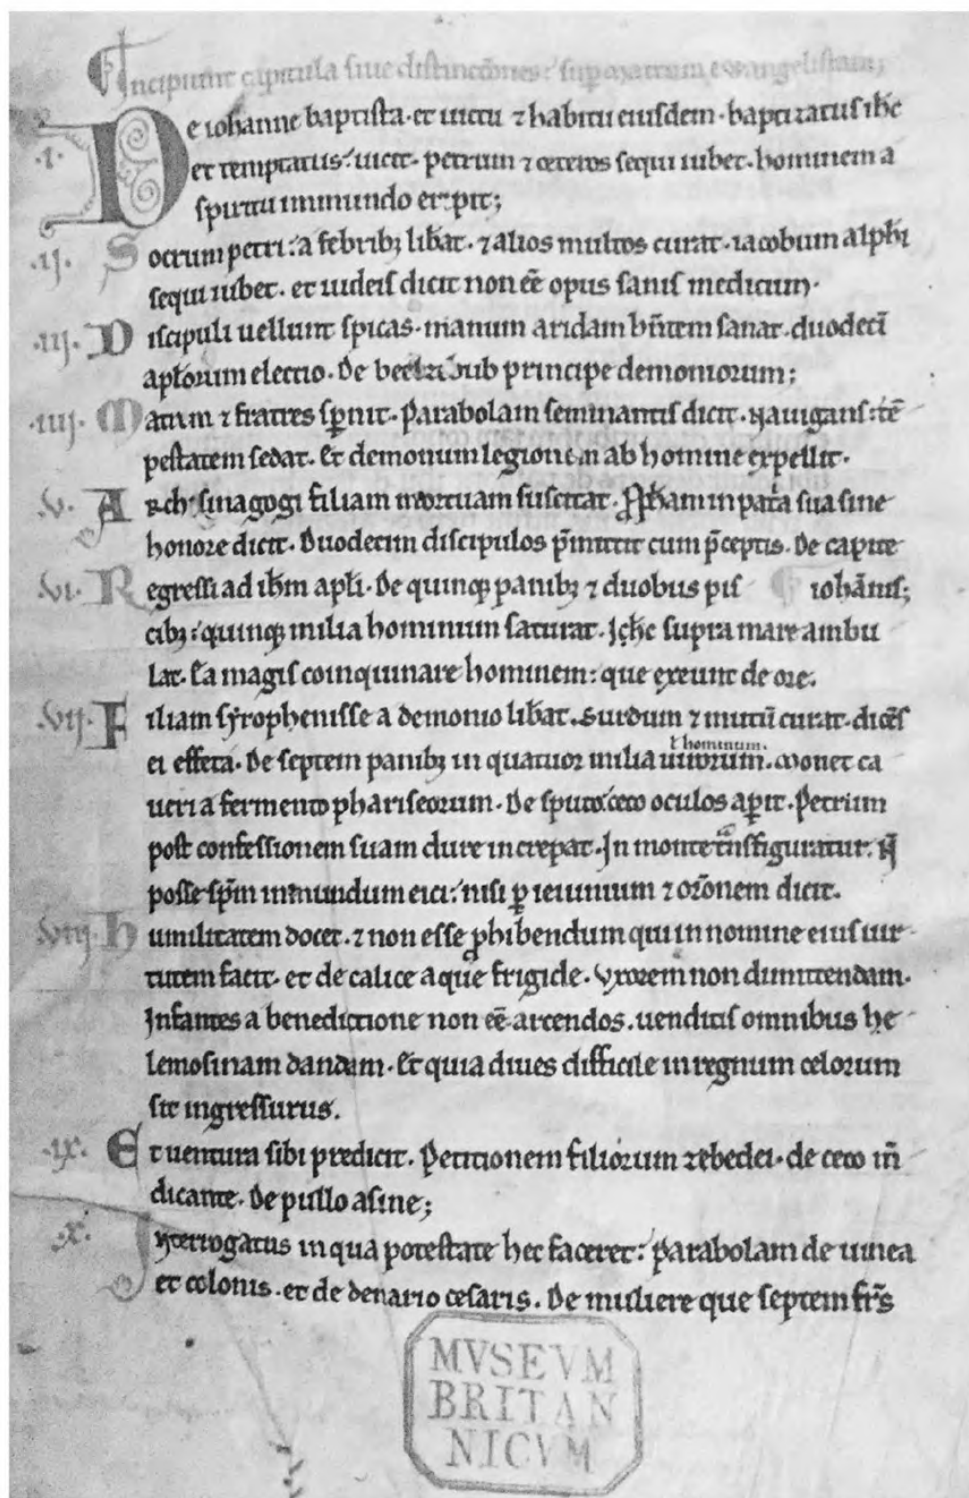 Incipiunt capitula siue distinctiones: sup marcum ewangelistam;
.I. De iohanne baptista. et uictu ⁊ habitu eiusdem. baptizatus ih̄c
et temptatus: uicit. petrum ⁊ ceteros sequi iubet. hominem a
spiritu immundo eripit;
.ij. Socrum petri: a febribꝫ lib̄at. ⁊ alios multos curat. iacobum alph̄i
sequi iubet. et iudeis dicit non eē opus sanis medicum.
.iij. Discipuli uellunt spicas. manum aridam hn̄tem sanat. duodeci
apl̄orum electio. De beelzebub principe demoniorum;
.iiij. Matrem ⁊ fratres sp̄nit. Parabolam seminantis dicit. Nauigans: tē
pestatem sedat. Et demonum legionem ab homine expellit.
.v. Archisinagogi filiam mortuam suscitat. Ꝓph̄am in pat̄a sua sine
honore dicit. Duodecim discipulos p̄mittit cum p̄ceptis. De capite
iohānis;
.vi. Regressi ad ih̄m apl̄i. De quinqꝫ panibꝫ ⁊ duobus pis
cibꝫ: quinqꝫ milia hominum saturat. Ih̄c supra mare ambu
lat. Ea magis coinquinare hominem: que exeunt de ore.
.vij. Filiam syrophenisse a demonio lib̄at. Surdum ⁊ mutū curat. dicēs
ei effeta. De septem panibꝫ in quatuor milia uirorum. Monet ca
ł hominum.
ueri a fermento phariseorum. De sputo: ceco oculos apꝭit. Petrum
post confessionem suam dure increpat. In monte tᵃnsfiguratur. N̄
posse sp̄m inmundum eici: nisi ꝑ ieiunium ⁊ orōnem dicit.
.viij. Humilitatem docet. ⁊ non esse ꝓhibendum qui in nomine eius uir
tutem facit. et de calice aque frigide. Vxorem non dimittendam.
Infantes a benedictione non eē arcendos. uenditis omnibus he
lemosinam dandam. Et quia diues difficile in regnum celorum
sit ingressurus.
.ix. Et uentura sibi predicit. Petitionem filiorum zebedei. de ceco m̄
dicante. De pullo asine;
.x. Interrogatus in qua potestate hec faceret: parabolam de uinea
et colonis. et de denario cesaris. De muliere que septem fr̄s
MVSEVM
BRITAN
NICVM